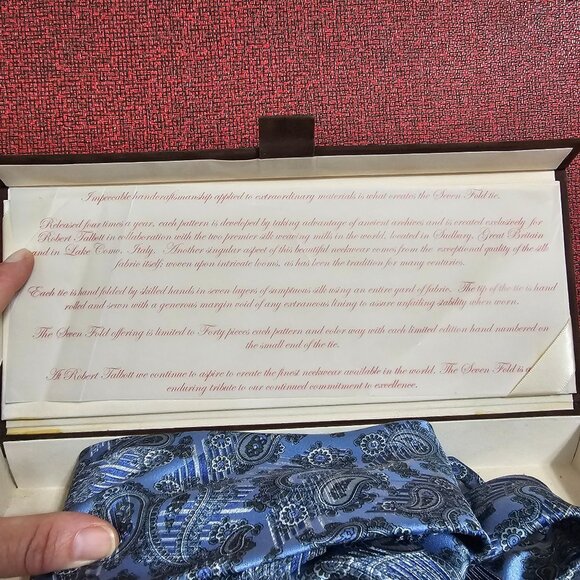 Impeccable handcraftsmanship applied to extraordinary materials is what creates the Seven Fold tie.
Released four times a year, each pattern is developed by taking advantage of ancient archives and is created exclusively for
Robert Talbott in collaboration with the two premier silk weaving mills in the world, located in Sudbury, Great Britain
and in Lake Como, Italy. Another singular aspect of this beautiful neckwear comes from the exceptional quality of the silk
fabric itself; woven upon intricate looms, as has been the tradition for many centuries.
Each tie is hand folded by skilled hands in seven layers of sumptuous silk using an entire yard of fabric. The tip of the tie is hand
rolled and sewn with a generous margin void of any extraneous lining to assure unfailing stability when worn.
The Seven Fold offering is limited to Forty pieces each pattern and color way with each limited edition hand numbered on
the small end of the tie.
At Robert Talbott we continue to aspire to create the finest neckwear available in the world. The Seven Fold is a
enduring tribute to our continued commitment to excellence.